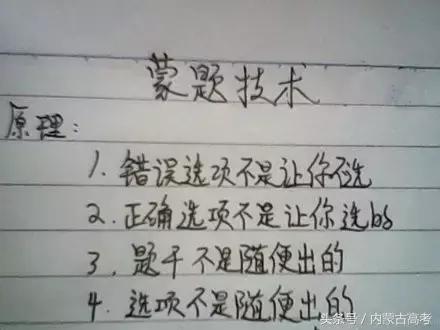 蒙题技术
原理：
1. 错误选项不是让你不选
2. 正确选项不是让你选bs
3. 题干不是随便出的
4. 选项不是随便出的
头条号/内蒙古高考